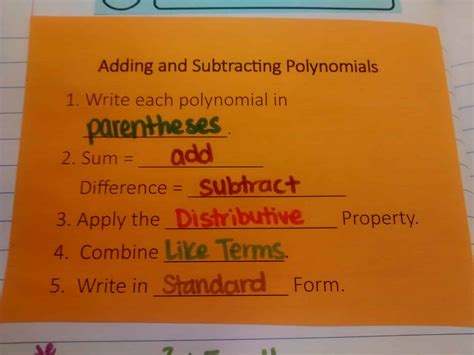 Adding and Subtracting Polynomials
1. Write each polynomial in
parentheses.
2. Sum = add
Difference = subtract
3. Apply the Distributive Property.
4. Combine Like Terms.
5. Write in Standard Form.